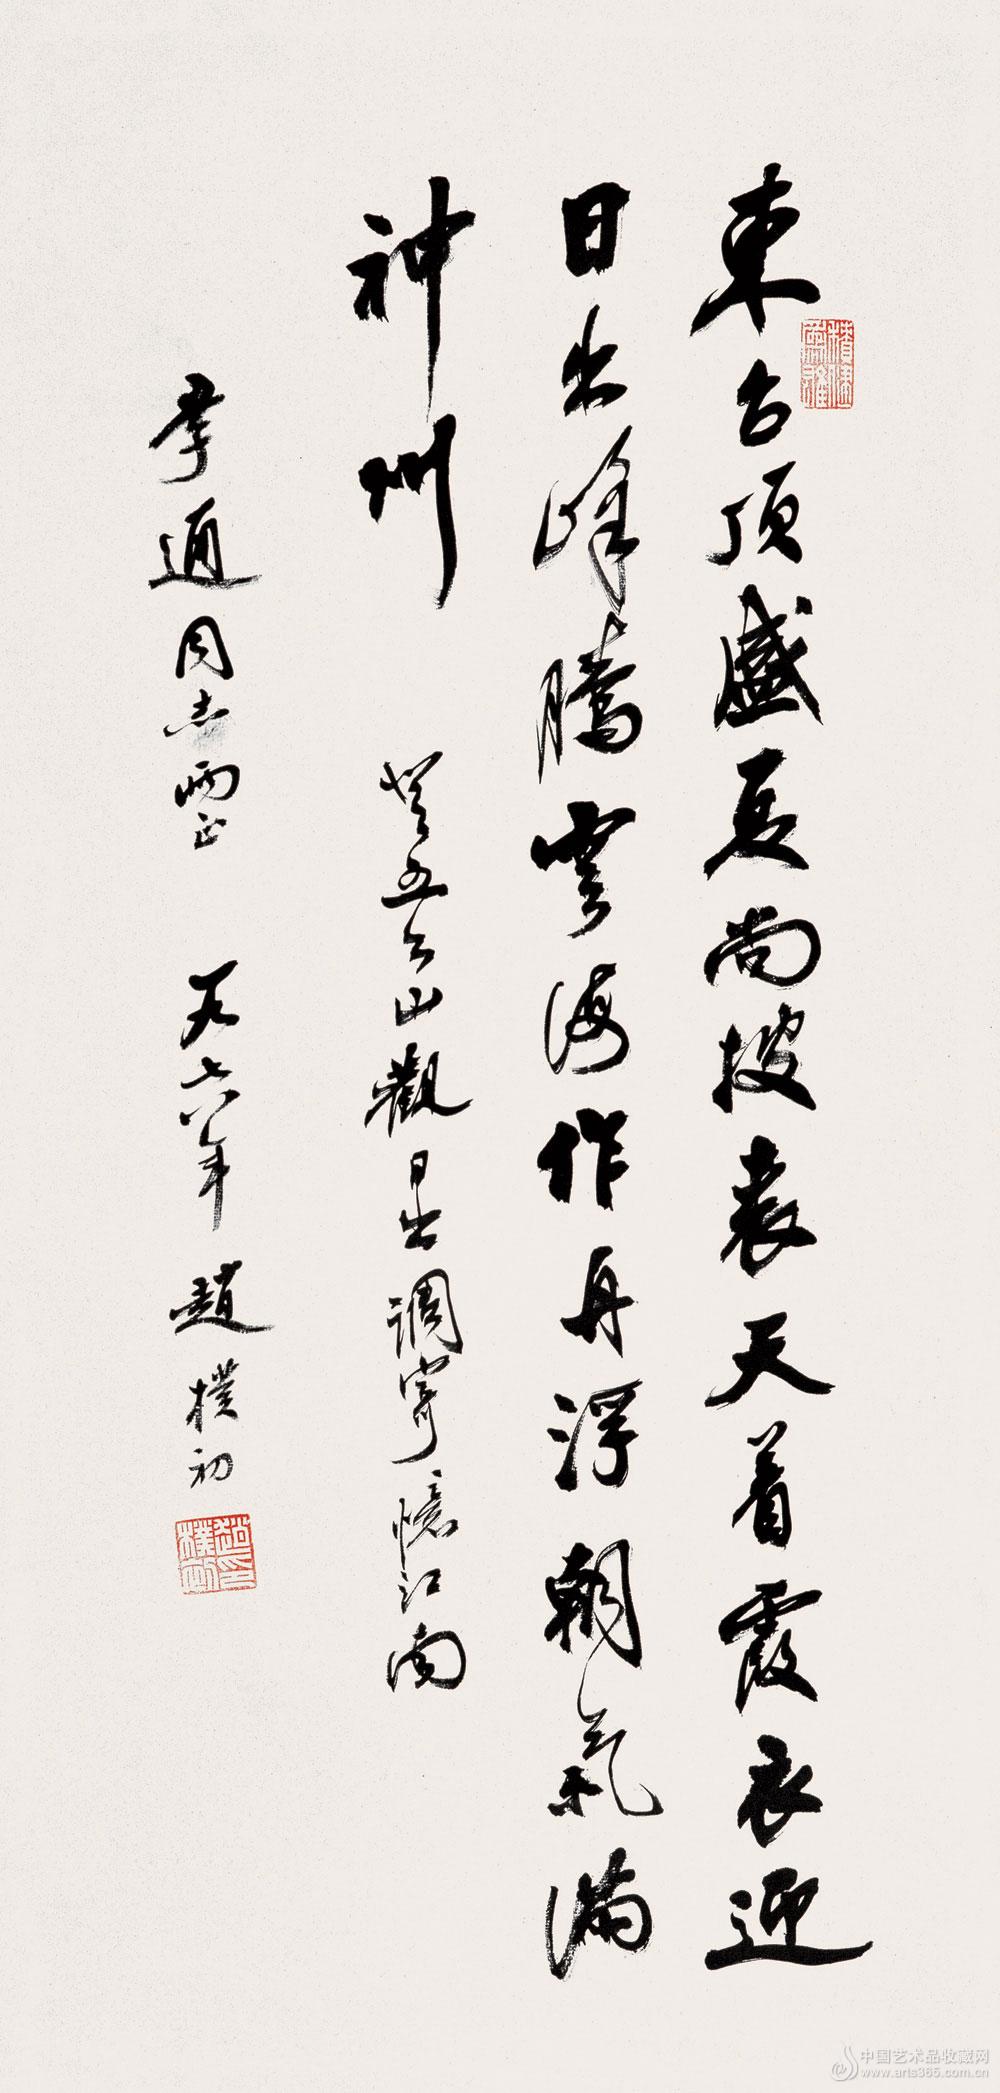 東台頂盛夏尚披裘天着霞衣迎
日出峰騰雲海作舟浮朝氣滿
神州
登五台山觀日出調寄憶江南
孝通同志兩正
一九七六年 趙樸初
趙樸初印
中国艺术品收藏网
www.arts365.com.cn